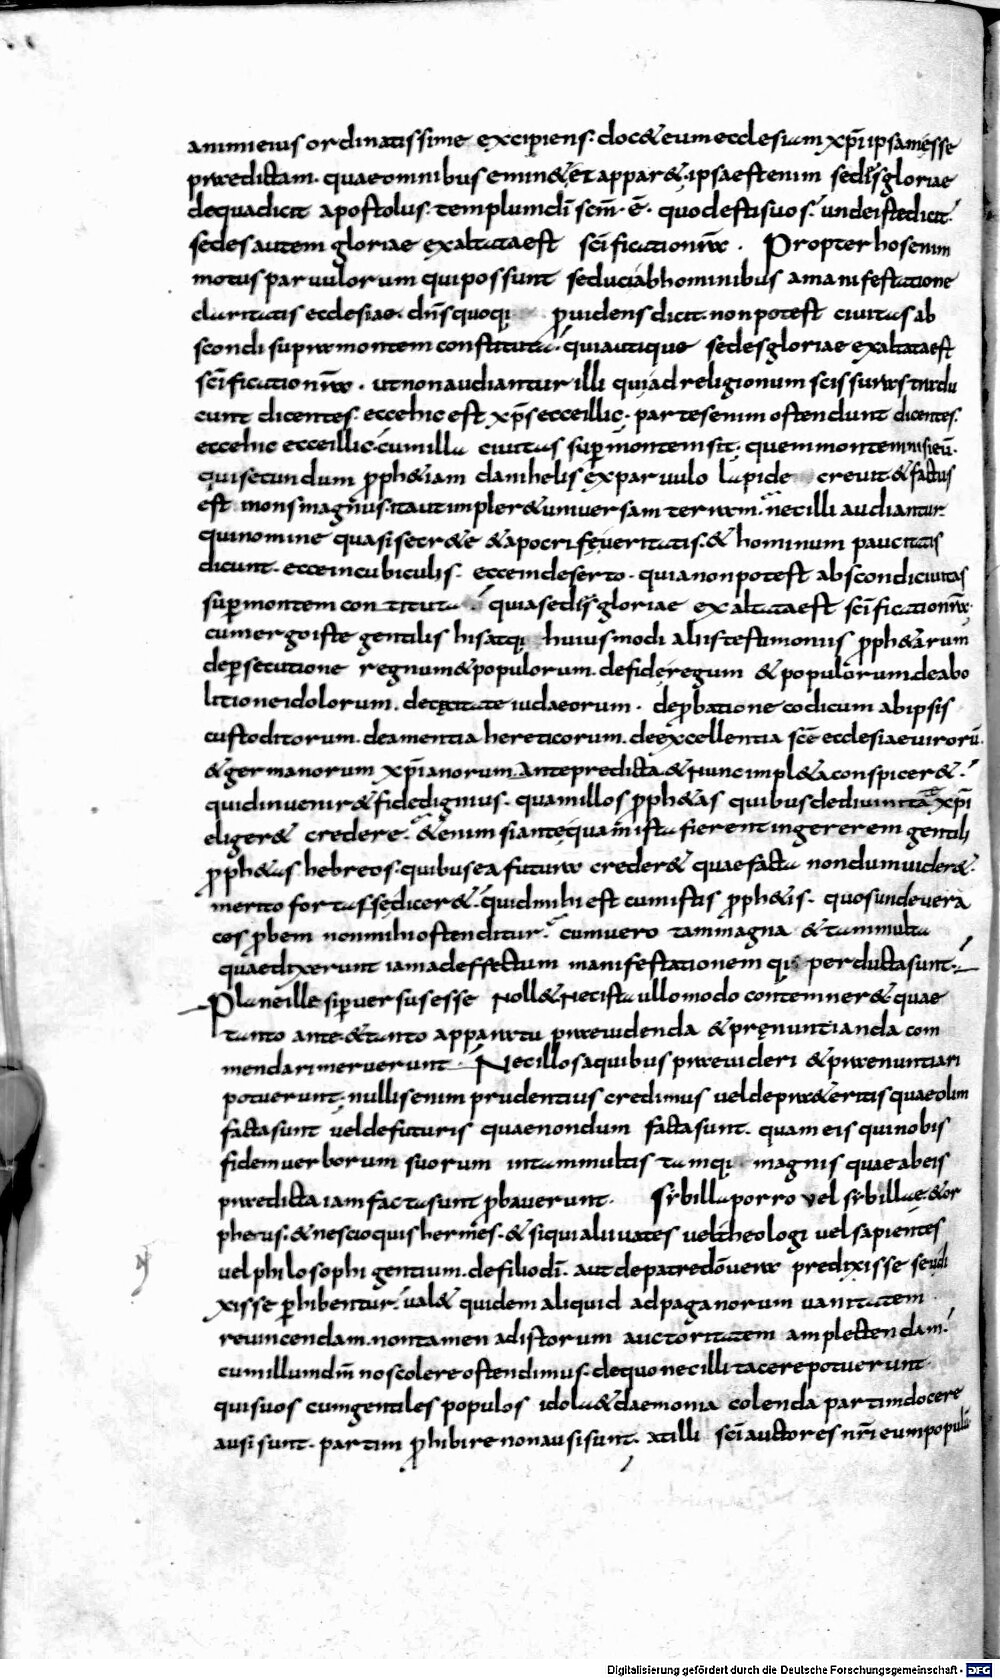 animi eius ordinatissime excipiens. doc& eum ecclesiam xp̄i ipsam esse
praedictam. quae omnibus emin& et appar&. ipsa est enim sedis gloriae
de qua dicit apostolus. templum dī scm̄. ē. quod estis uos. unde iste dicit.
sedes autem gloriae exaltata est scīficatio nr̄a. Propter hos enim
motus paruulorum qui possunt seduci ab hominibus a manifestatione
claritatis ecclesiae. dn̄s quoq; prouidens dicit. non potest ciuitas ab
scondi supra montem constituta. quia utique sedes gloriae exaltata est
scīficatio nr̄a. ut non audiantur illi qui ad religionum scissuras tradu
cunt dicentes. ecce hic est xp̄s ecce illic. partes enim ostendunt dicentes.
ecce hic ecce illic. cum illa ciuitas sup montem sit. quem montem nisi eū.
qui secundum proph&iam danihelis ex paruulo lapide creuit & factus
est mons magnus. ita ut impler& uniuersam terram. nec illi audiantur
qui nomine quasi secr&e & apocrife ueritatis. & hominum paucitatis
dicunt. ecce in cubiculis. ecce in deserto. quia non potest abscondi ciuitas
sup montem constituta. quia sedis gloriae exaltata est scīficatio nr̄a.
cum ergo iste gentilis his atq; huiusmodi aliis testimoniis proph&arum
de persecutione regnum & populorum. de fide regum & populorum. de abo
litione idolorum. de cecitate iudaeorum. de probatione codicum ab ipsis
custoditorum. de amentia hereticorum. de excellentia scē ecclesiae uirorū
& germanorum xp̄ianorum. ante predicta & nunc impl&a conspicer&.
quid inuenir& fide dignius. quam illos proph&as quibus de diuinitate xp̄i
eliger& credere. &enim si antequam ista fierent ingererem gentili
proph&as hebreos. quibus ea futura creder& quae facta nondum uider&.
merito fortasse dicer&. quid mihi est cum istis proph&is. quos unde uera
ces probem non mihi ostenditur. cum uero tam magna & tam multa
quae dixerunt iam ad effectum manifestationemq; perducta sunt.
Plane ille si peruersus esse noll& nec ista ullo modo contemner& quae
tanto ante & tanto apparatu praeuidenda & prenuntianda com
mendari meruerunt. Nec illos a quibus praeuideri & praenuntiari
potuerunt. nullis enim prudentius credimus uel de praeteritis quae olim
facta sunt uel de futuris quae nondum facta sunt. quam eis qui nobis
fidem uerborum suorum in tam multis tamq; magnis quae ab eis
praedicta iam facta sunt probauerunt. Sybilla porro uel sybillae. & or
pheus. & nescio quis hermes. & si qui alii uates uel theologi uel sapientes
uel philosophi gentium. de filio dī. aut de patre dō uera predixisse seu di
xisse perhibentur. ual& quidem aliquid ad paganorum uanitatem
reuincendam. non tamen ad istorum auctoritatem amplectendam.
cum illum dm̄ nos colere ostendimus. de quo nec illi tacere potuerunt.
qui suos cumgentiles populos idola & daemonia colenda partim docere
ausi sunt. partim prohibire non ausi sunt. At illi scī auctores nr̄i eum populū